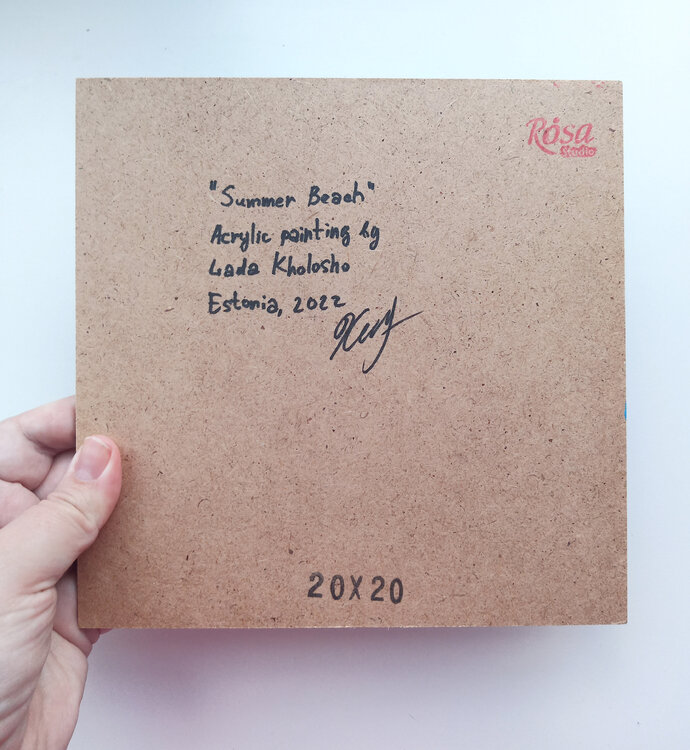 Rosa
Studio
"Summer Beach"
Acrylic painting by
Lada Kholosho
Estonia, 2022
20X20